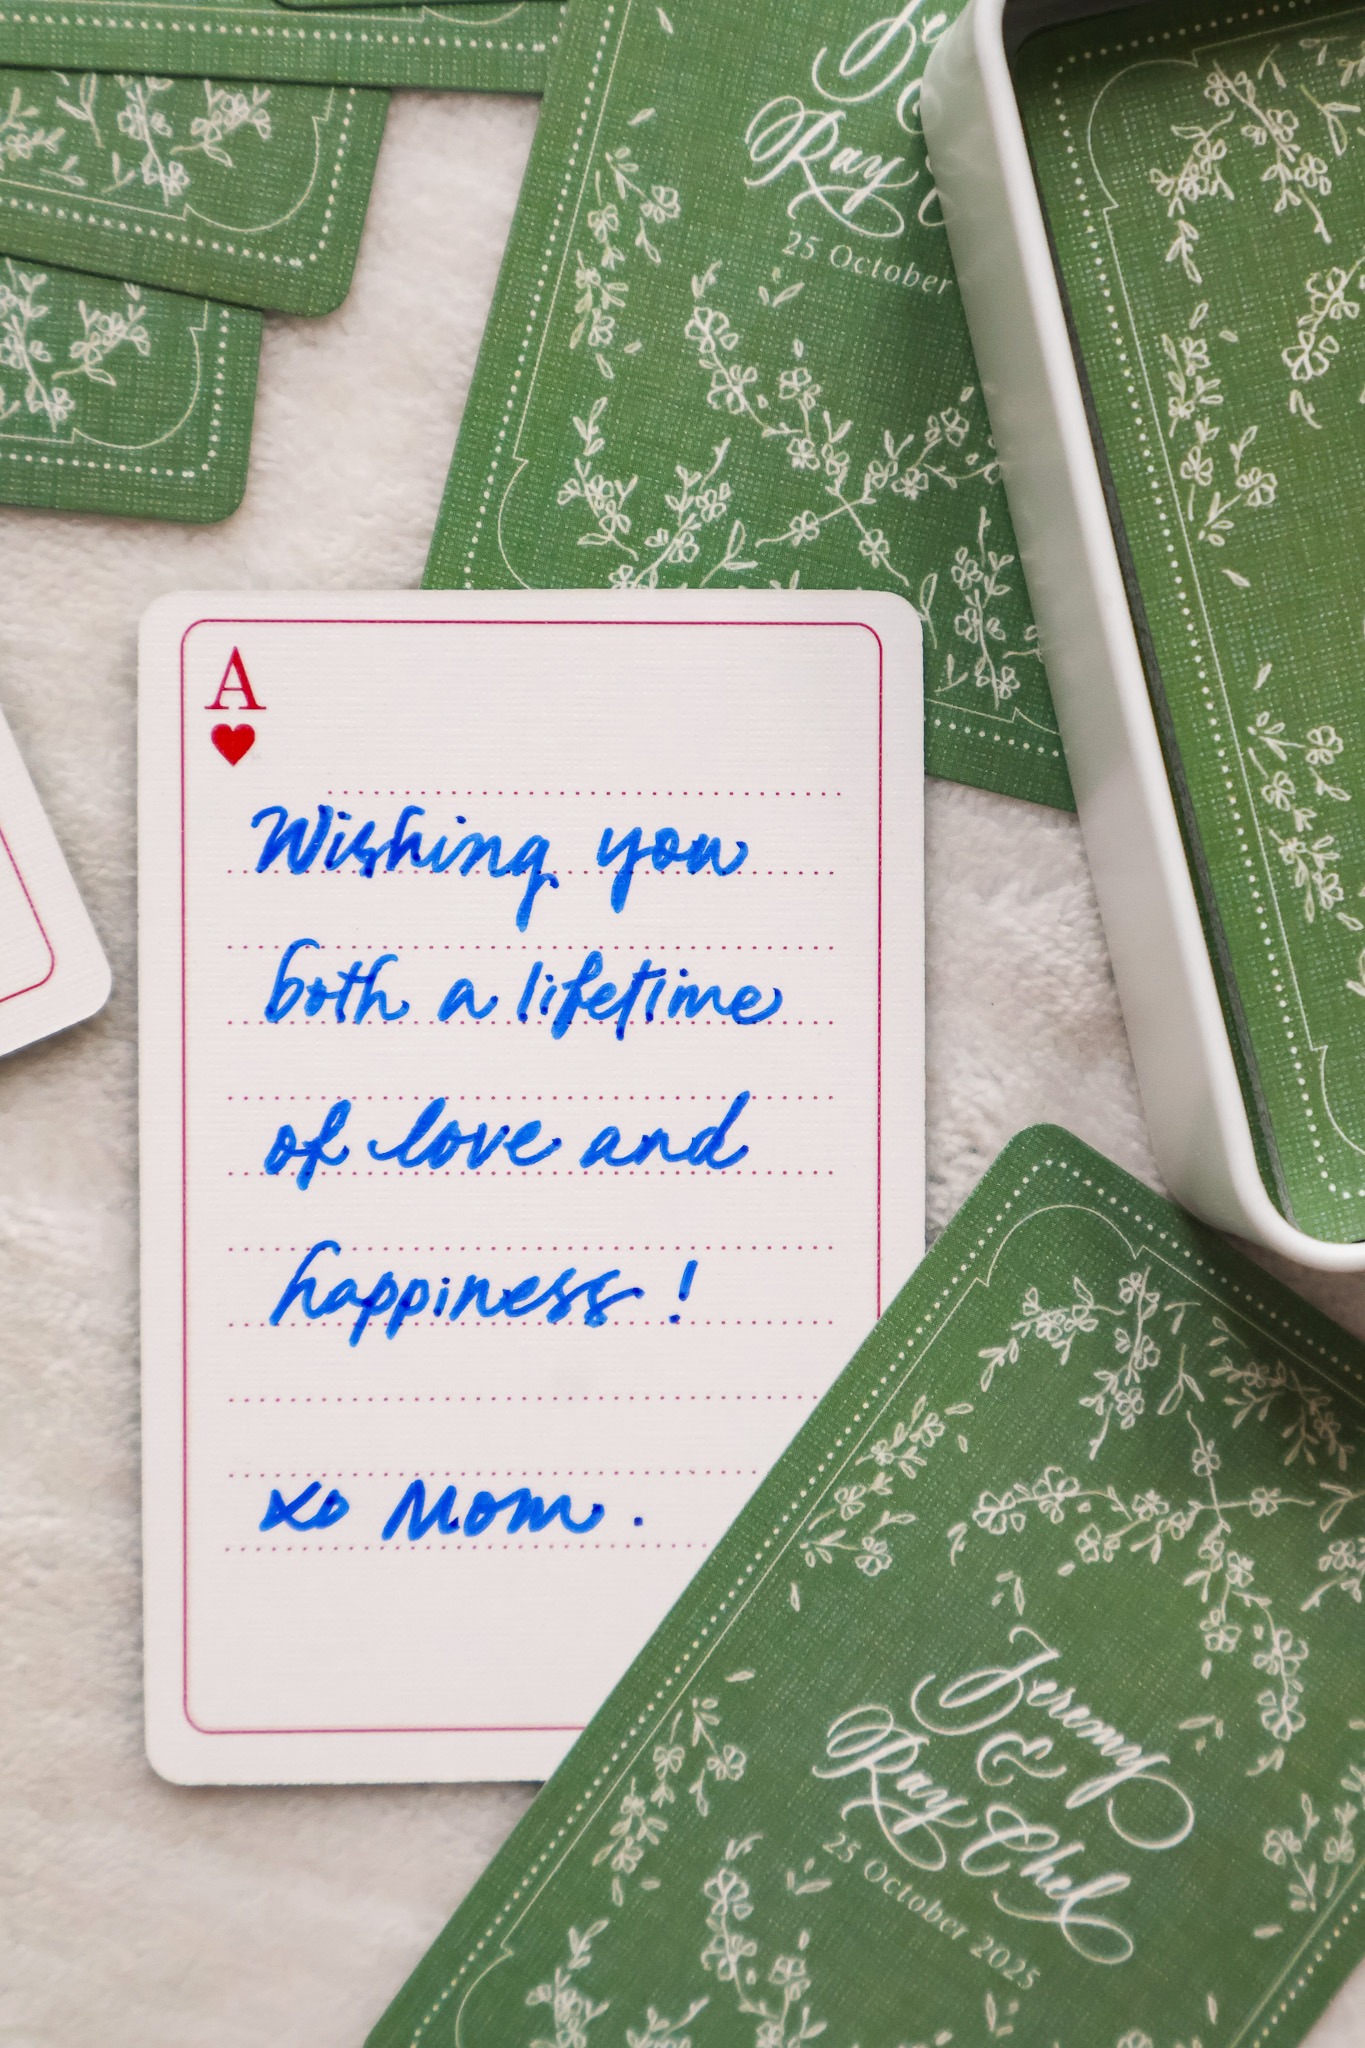 Ray
25 October
A
Wishing you
both a lifetime
of love and
happiness!
xo Mom.
Jeremy
&
Ray Chel
25 October 2025